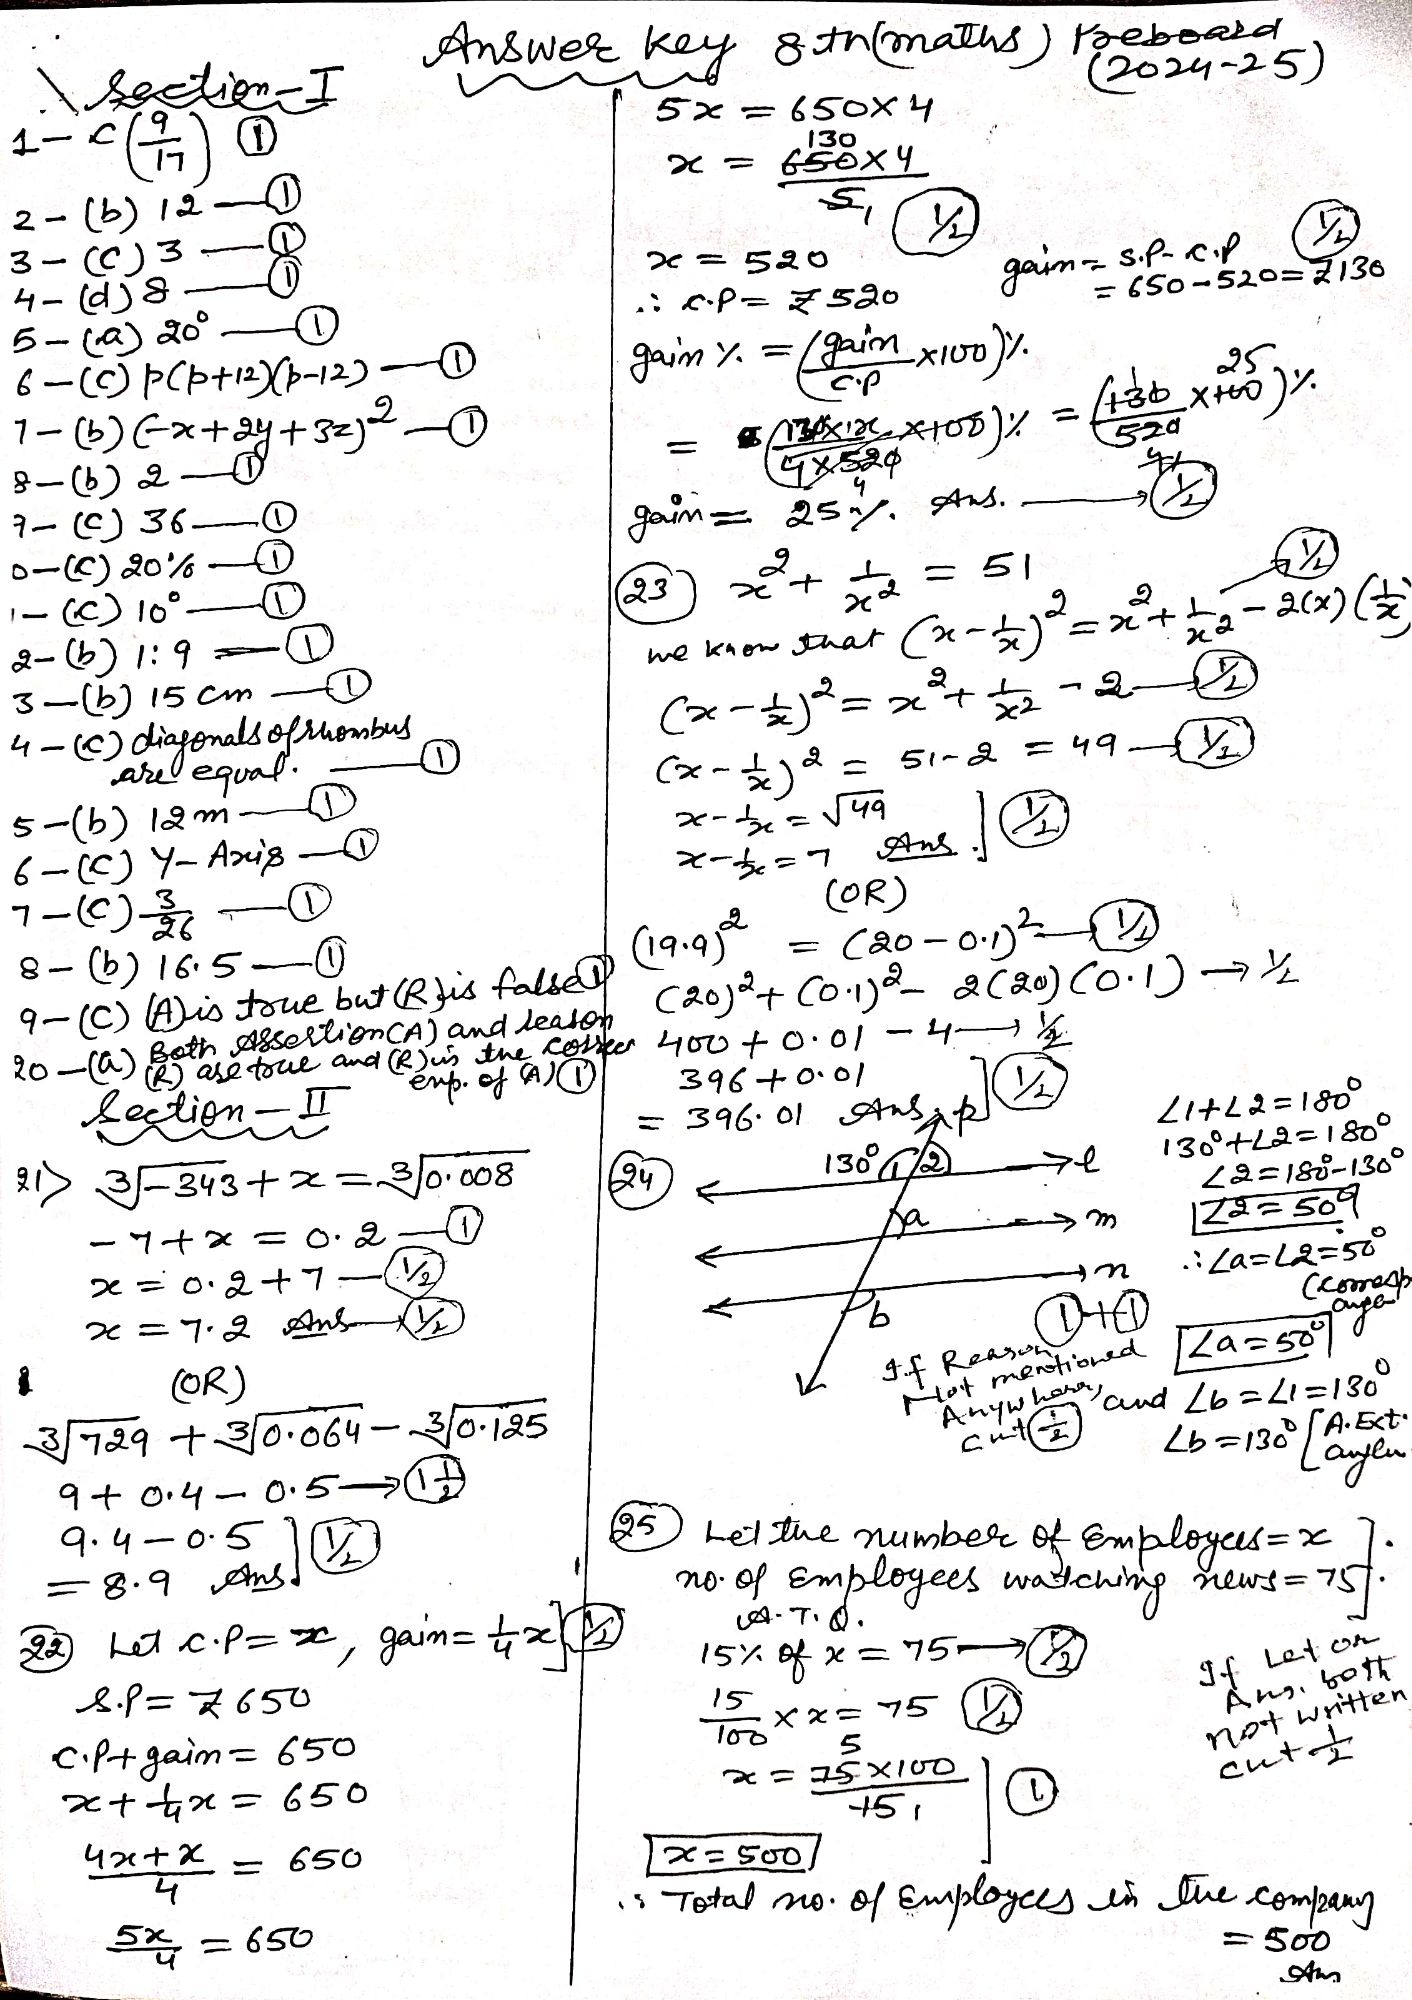 Answer Key 8th (maths) Preboard
(2024-25)
Section-I
1- c (9/17) ①
2- (b) 12 — ①
3- (c) 3 — ①
4- (d) 8 — ①
5- (a) 20° — ①
6- (c) p(p+12)(p-12) — ①
7- (b) (-x+2y+3z)² — ①
8- (b) 2 — ①
9- (c) 36 — ①
0- (c) 20% — ①
1- (c) 10° — ①
2- (b) 1:9 — ①
3- (b) 15 cm — ①
4- (c) diagonals of rhombus
are equal. — ①
5- (b) 12m — ①
6- (c) Y-Axis — ①
7- (c) 3/26 — ①
8- (b) 16.5 — ①
9- (c) (A) is true but (R) is false ①
20- (a) Both Assertion (A) and reason
(R) are true and (R) is the correc
exp. of (A) ①
Section-II
21> ∛-343 + x = ∛0.008
-7+x = 0.2 — ①
x = 0.2+7 — ½
x = 7.2 Ans — ½
(OR)
∛729 + ∛0.064 - ∛0.125
9+0.4-0.5 → 1½
9.4-0.5
= 8.9 Ans. ] ½
22 Let C.P = x, gain = ¼x ] ½
S.P = ₹650
C.P+gain = 650
x+¼x = 650
(4x+x)/4 = 650
5x/4 = 650
5x = 650×4
x = 130 650×4/5 1
x = 520 ½
∴ C.P = ₹520
gain = S.P - C.P ½
= 650-520 = ₹130
gain % = (gain/C.P ×100)%
= (130/520 ×100)% 1 25 4
gain = 25%. Ans. → ½
23 x² + 1/x² = 51
we know that (x-1/x)² = x²+1/x² - 2(x)(1/x) ½
(x-1/x)² = x²+1/x² - 2 — ½
(x-1/x)² = 51-2 = 49 — ½
x-1/x = √49
x-1/x = 7 Ans. ] ½
(OR)
(19.9)² = (20-0.1)² — ½
(20)²+(0.1)² - 2(20)(0.1) → ½
400+0.01-4 → ½
396+0.01
= 396.01 Ans. ] ½
24
p
130° 1 2 l
a m
b n
①+①
If Reason
Not mentioned
Anywhere,
cut ½
∠1+∠2=180°
130°+∠2=180°
∠2=180°-130°
∠2=50°
∴∠a=∠2=50°
(corresp
angle
∠a=50°
and ∠b=∠1=130°
∠b=130° [A.Ext.
angle
25 Let the number of Employees = x
no. of Employees watching news = 75
A.T.Q.
15% of x = 75 → ½
15/100 × x = 75 ½
x = 5 75×100/15 1
x = 500 ] ①
If Let or
Ans. both
not written
cut ½
∴ Total no. of Employees in the company
= 500
Ans